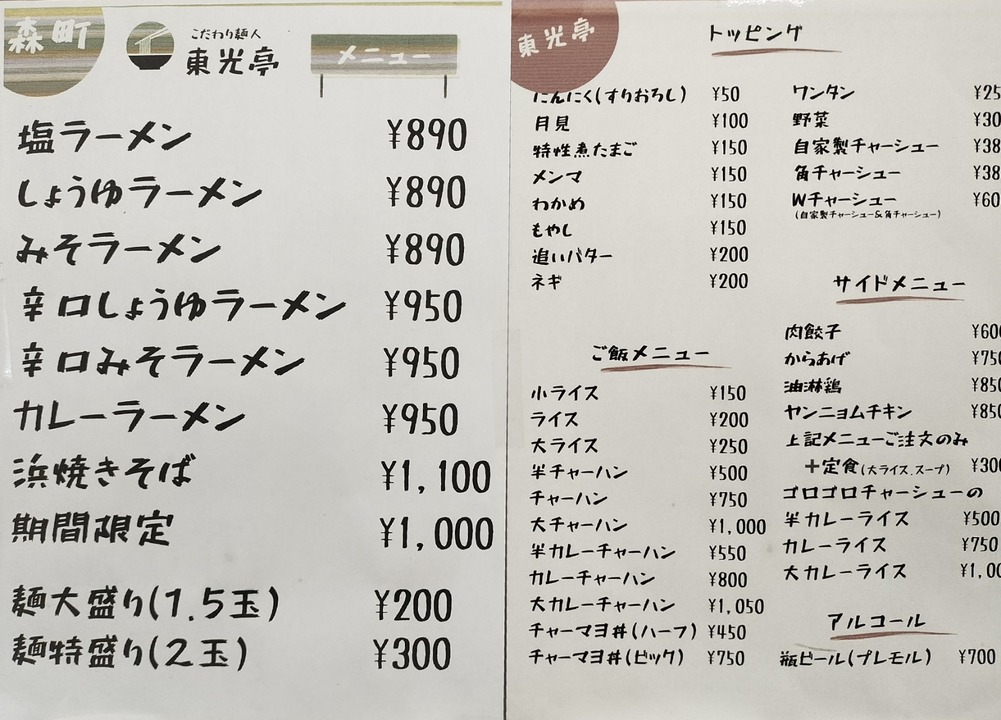 森町
こだわり麺人
東光亭
メニュー
塩ラーメン ¥890
しょうゆラーメン ¥890
みそラーメン ¥890
辛口しょうゆラーメン ¥950
辛口みそラーメン ¥950
カレーラーメン ¥950
浜焼きそば ¥1,100
期間限定 ¥1,000
麺大盛り(1.5玉) ¥200
麺特盛り(2玉) ¥300
東光亭
トッピング
にんにく(すりおろし) ¥50
月見 ¥100
特性煮たまご ¥150
メンマ ¥150
わかめ ¥150
もやし ¥150
追いバター ¥200
ネギ ¥200
ワンタン ¥25
野菜 ¥30
自家製チャーシュー ¥38
角チャーシュー ¥38
Wチャーシュー ¥60
(自家製チャーシュー&角チャーシュー)
ご飯メニュー
小ライス ¥150
ライス ¥200
大ライス ¥250
半チャーハン ¥500
チャーハン ¥750
大チャーハン ¥1,000
半カレーチャーハン ¥550
カレーチャーハン ¥800
大カレーチャーハン ¥1,050
チャーマヨ丼(ハーフ) ¥450
チャーマヨ丼(ビック) ¥750
サイドメニュー
肉餃子 ¥600
からあげ ¥750
油淋鶏 ¥850
ヤンニョムチキン ¥850
上記メニューご注文のみ
+定食(大ライス.スープ) ¥300
ゴロゴロチャーシューの
半カレーライス ¥500
カレーライス ¥750
大カレーライス ¥1,00
アルコール
瓶ビール(プレモル) ¥700